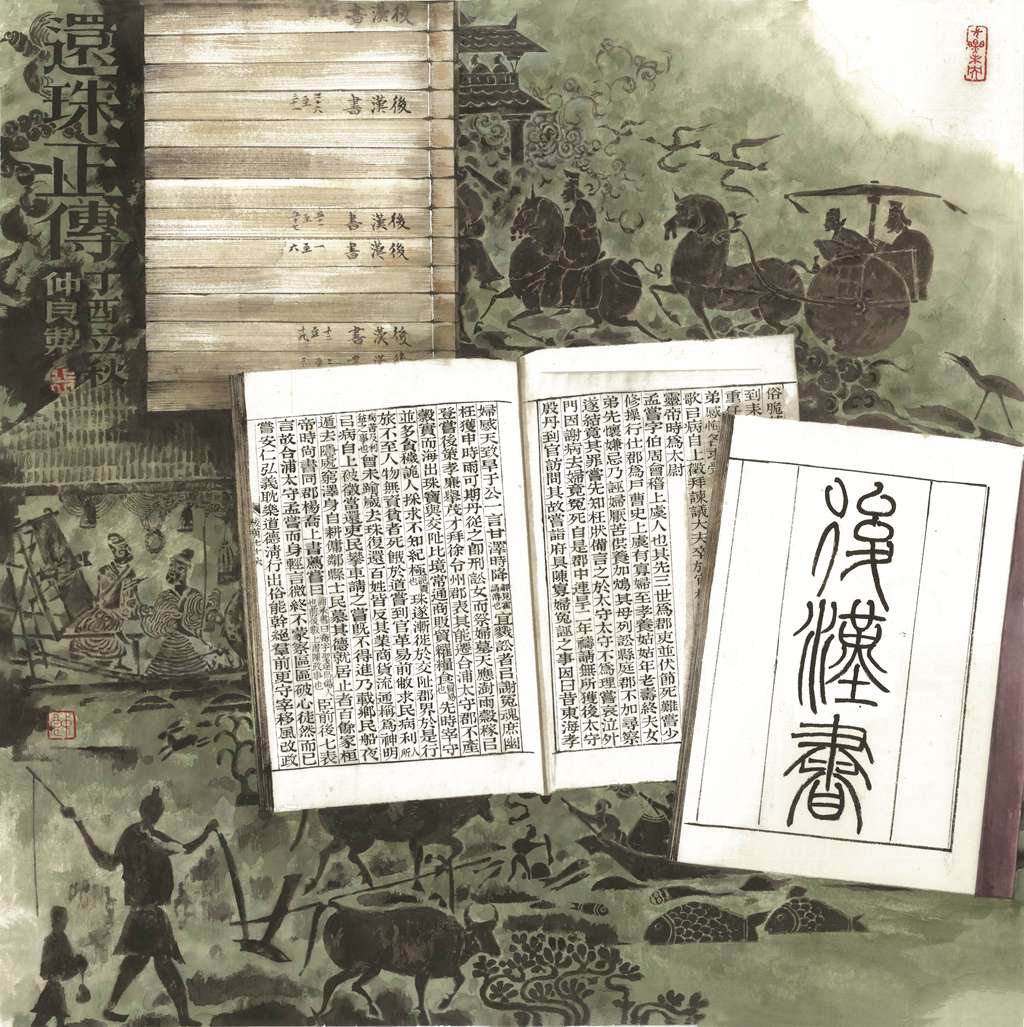 還珠正傳
丁酉立秋
仲良製
後漢書
後漢書
後漢書
後漢書 一至六
後漢書
靈帝時為太尉
孟嘗字伯周會稽上虞人也其先三世為郡吏並伏節死難嘗少
修操行仕郡為戶曹史上虞有寡婦至孝養姑姑年老壽終夫女
弟先懷嫌忌乃誣婦厭苦供養加鴆其母列訟縣庭郡不加尋察
遂結竟其罪嘗先知枉狀備言之於太守太守不為理嘗哀泣外
門因謝病去婦竟冤死自是郡中連旱二年禱請無所獲後太守
殷丹到官訪問其故嘗詣府具陳寡婦冤誣之事因曰昔東海孝
婦感天致旱于公一言甘澤時降宜戮訟者㠯謝冤魂庶幽
枉獲申時雨可期丹從之即刑訟女而祭婦墓天應澍雨穀稼㠯
登嘗後策孝廉舉茂才拜徐令州郡表其能遷合浦太守郡不產
穀實而海出珠寶與交阯比境常通商販貿糴糧食先時宰守
並多貪穢詭人採求不知紀極珠遂漸徙於交阯郡界於是行
旅不至人物無資貧者死餓於道嘗到官革易前敝求民病利
曾未踰歲去珠復還百姓皆反其業商貨流通稱為神明
㠯病自上被徵當還吏民攀車請之嘗既不得進乃載鄉民船夜
遁去隱處窮澤身自耕傭鄰縣士民慕其德就居止者百餘家桓
帝時尚書同郡楊喬上書薦嘗曰臣前後七表
言故合浦太守孟嘗而身輕言微終不蒙察區區破心徒然而已
嘗安仁弘義耽樂道德清行出俗能幹絕羣前更守宰移風改政
後漢書